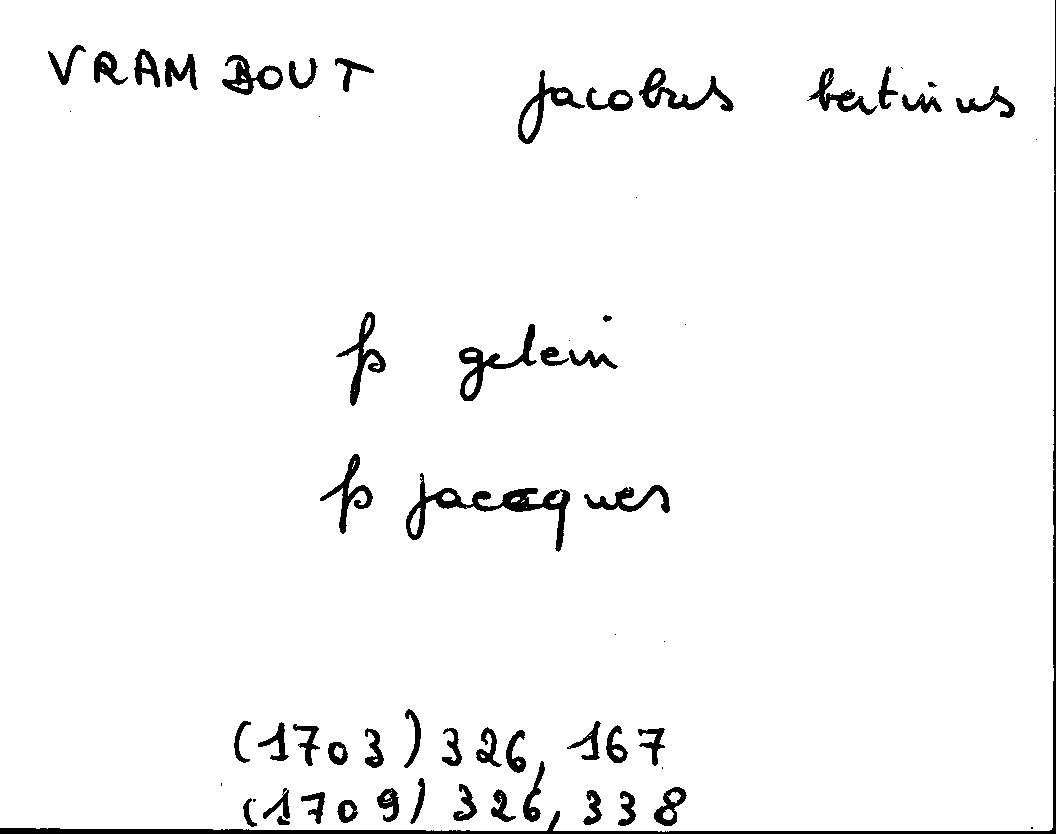 VRAMBOUT jacobus bertinus
fs gelein
fs jacques
(1703) 326, 167
(1709) 326, 338